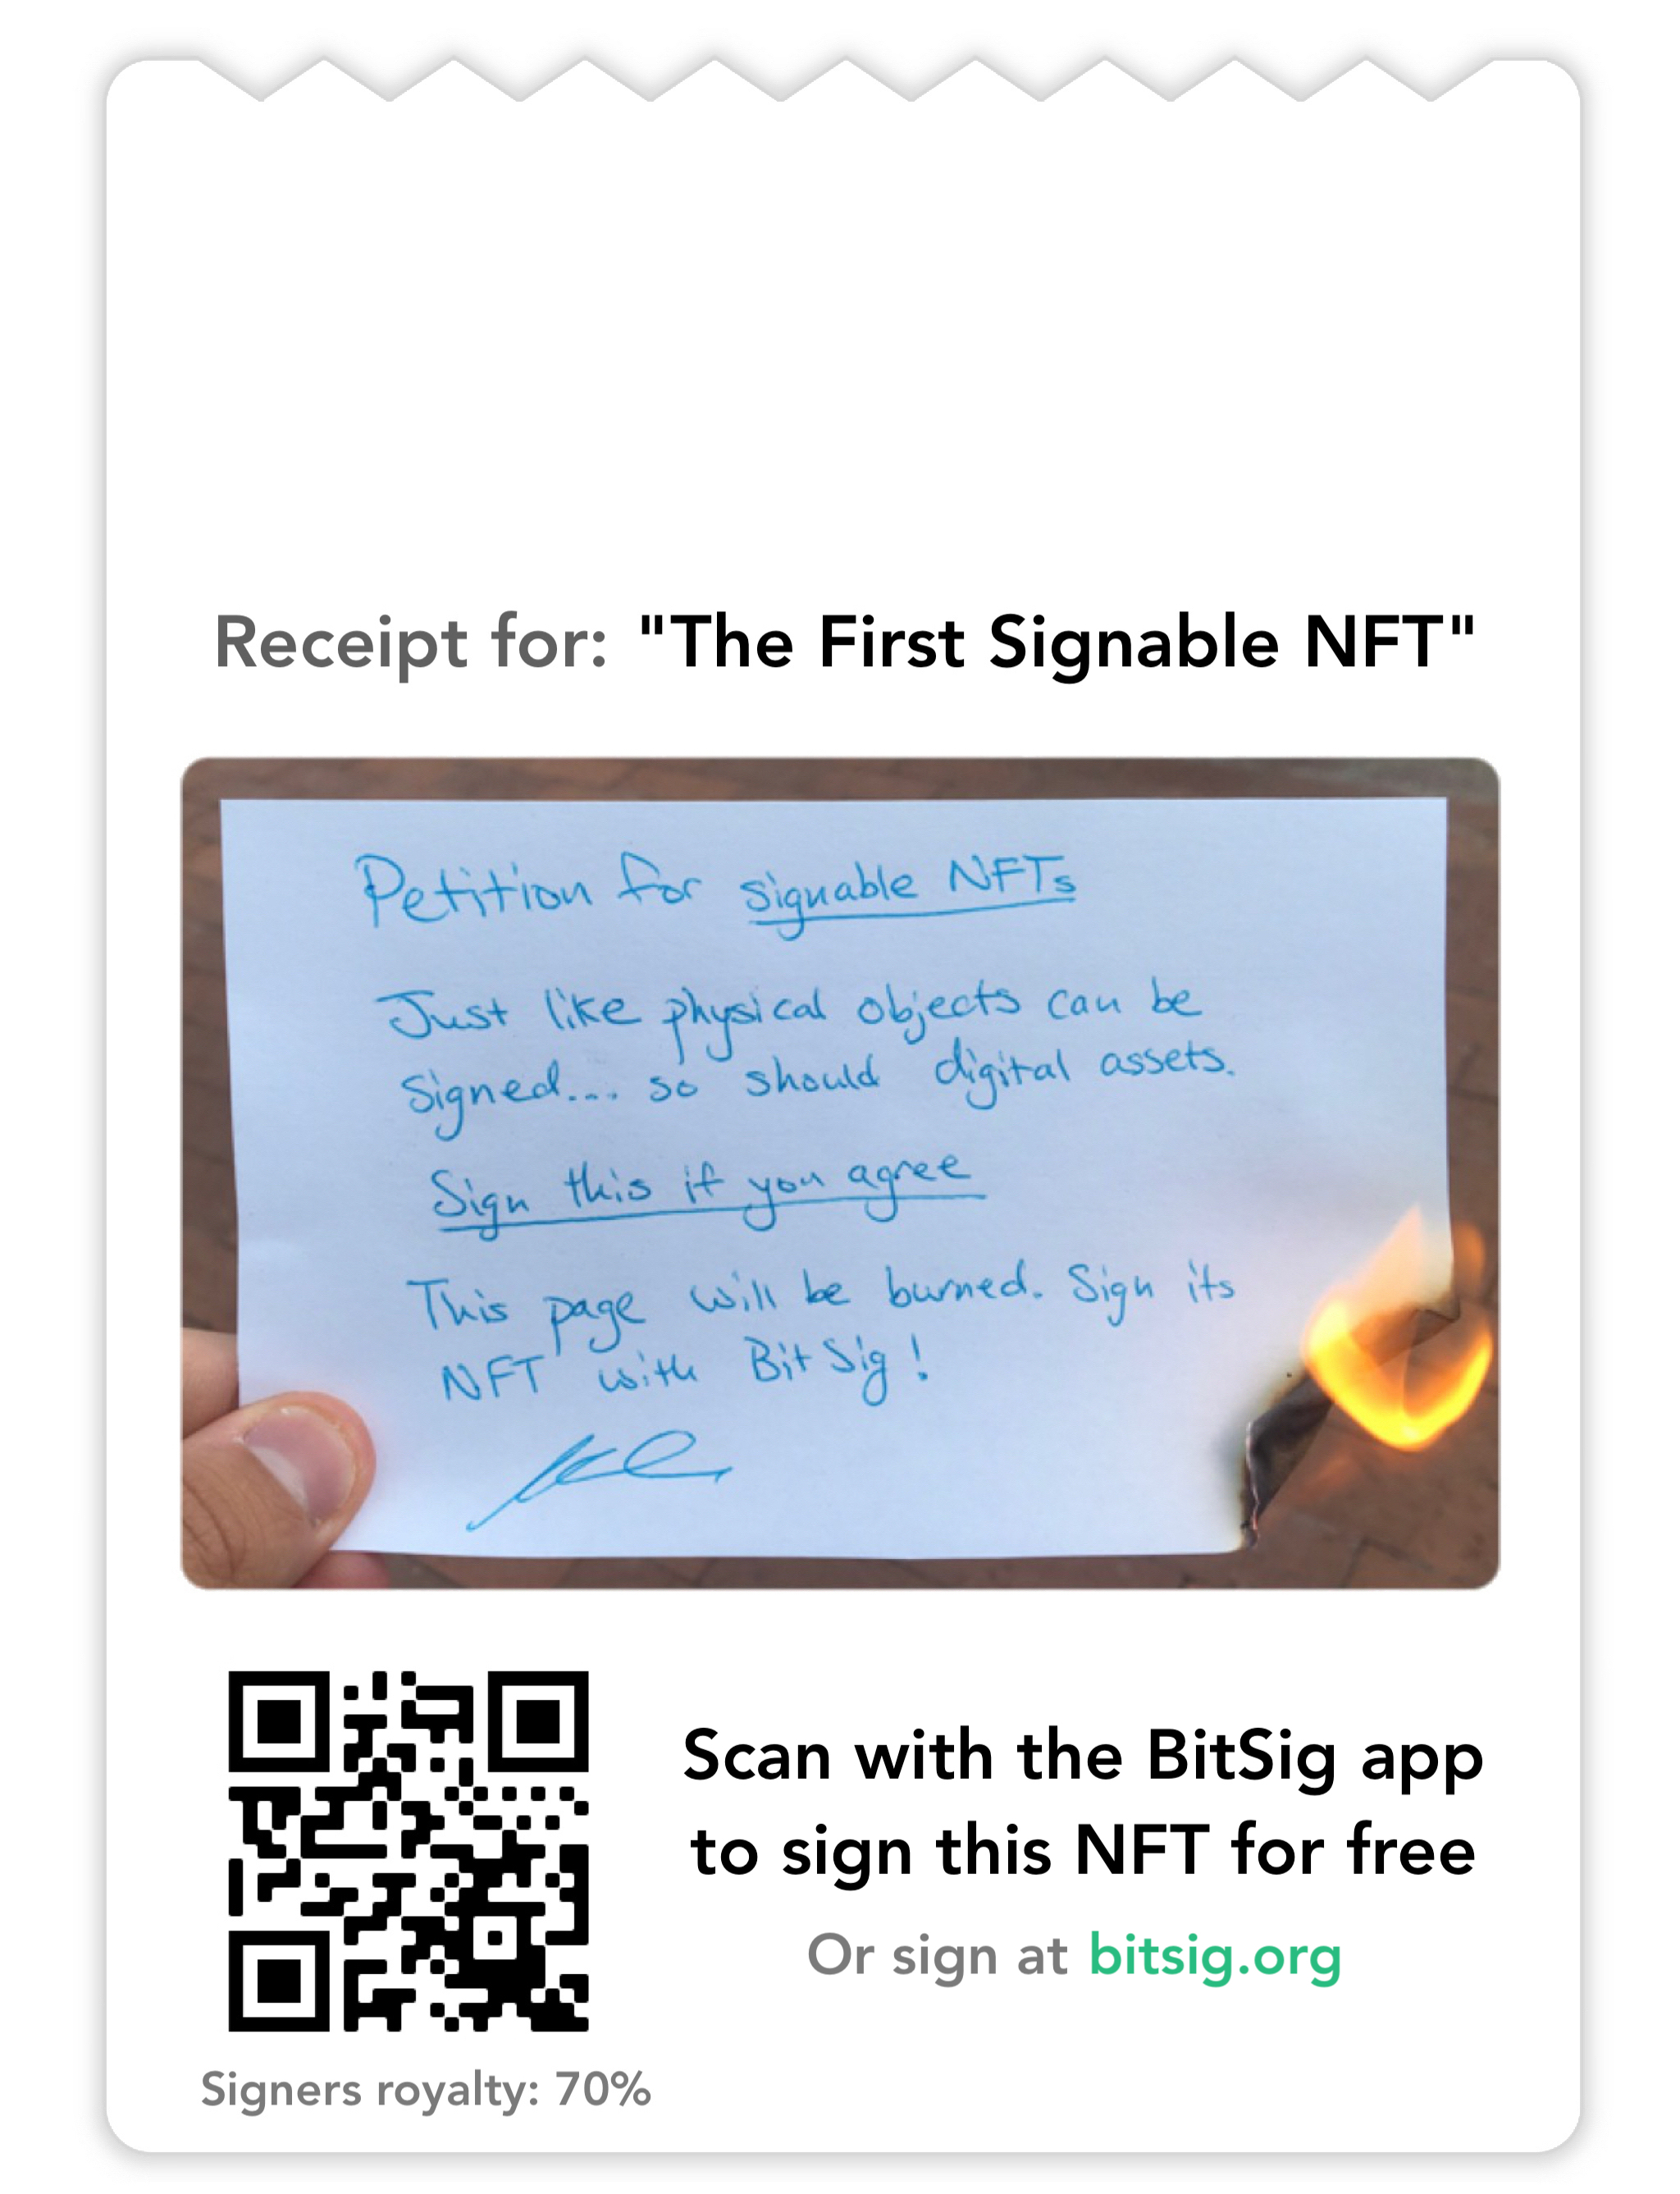 Receipt for: "The First Signable NFT"
Petition for signable NFTs
Just like physical objects can be
signed... so should digital assets.
Sign this if you agree
This page will be burned. Sign its
NFT with BitSig!
Scan with the BitSig app
to sign this NFT for free
Or sign at bitsig.org
Signers royalty: 70%